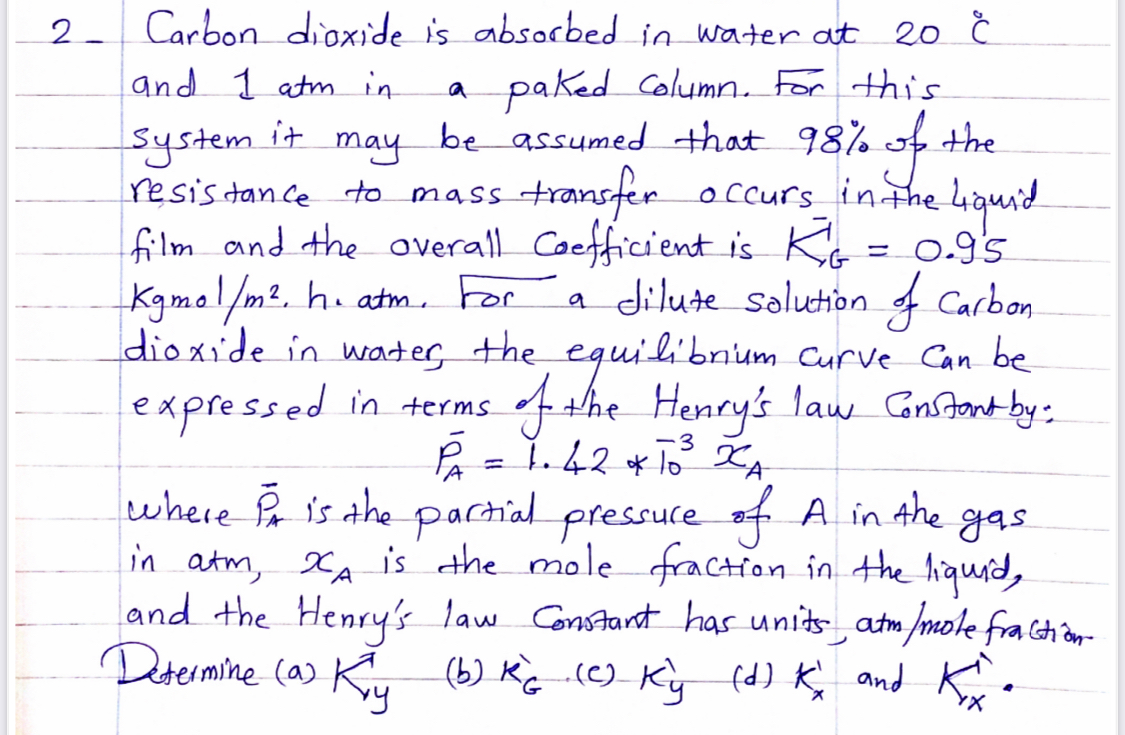 2 - Carbon dioxide is absorbed in water at 20 C°
and 1 atm in a paked Column. For this
system it may be assumed that 98% of the
resistance to mass transfer occurs in the liquid
film and the overall Coefficient is K'G = 0.95
Kgmol/m². h. atm. For a dilute solution of Carbon
dioxide in water, the equilibrium curve Can be
expressed in terms of the Henry's law Constant by:
P̄A = 1.42 * 10⁻³ xA
where P̄A is the partial pressure of A in the gas
in atm, xA is the mole fraction in the liquid,
and the Henry's law Constant has units, atm/mole fraction.
Determine (a) K'y (b) k'G (c) k'y (d) k'x and K'x.